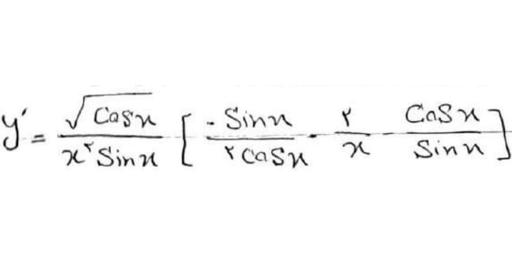 y′ = √(Cosx) / (x² Sinx) [ -Sinx / ۲Cosx - ۲/x - Cosx / Sinx ]